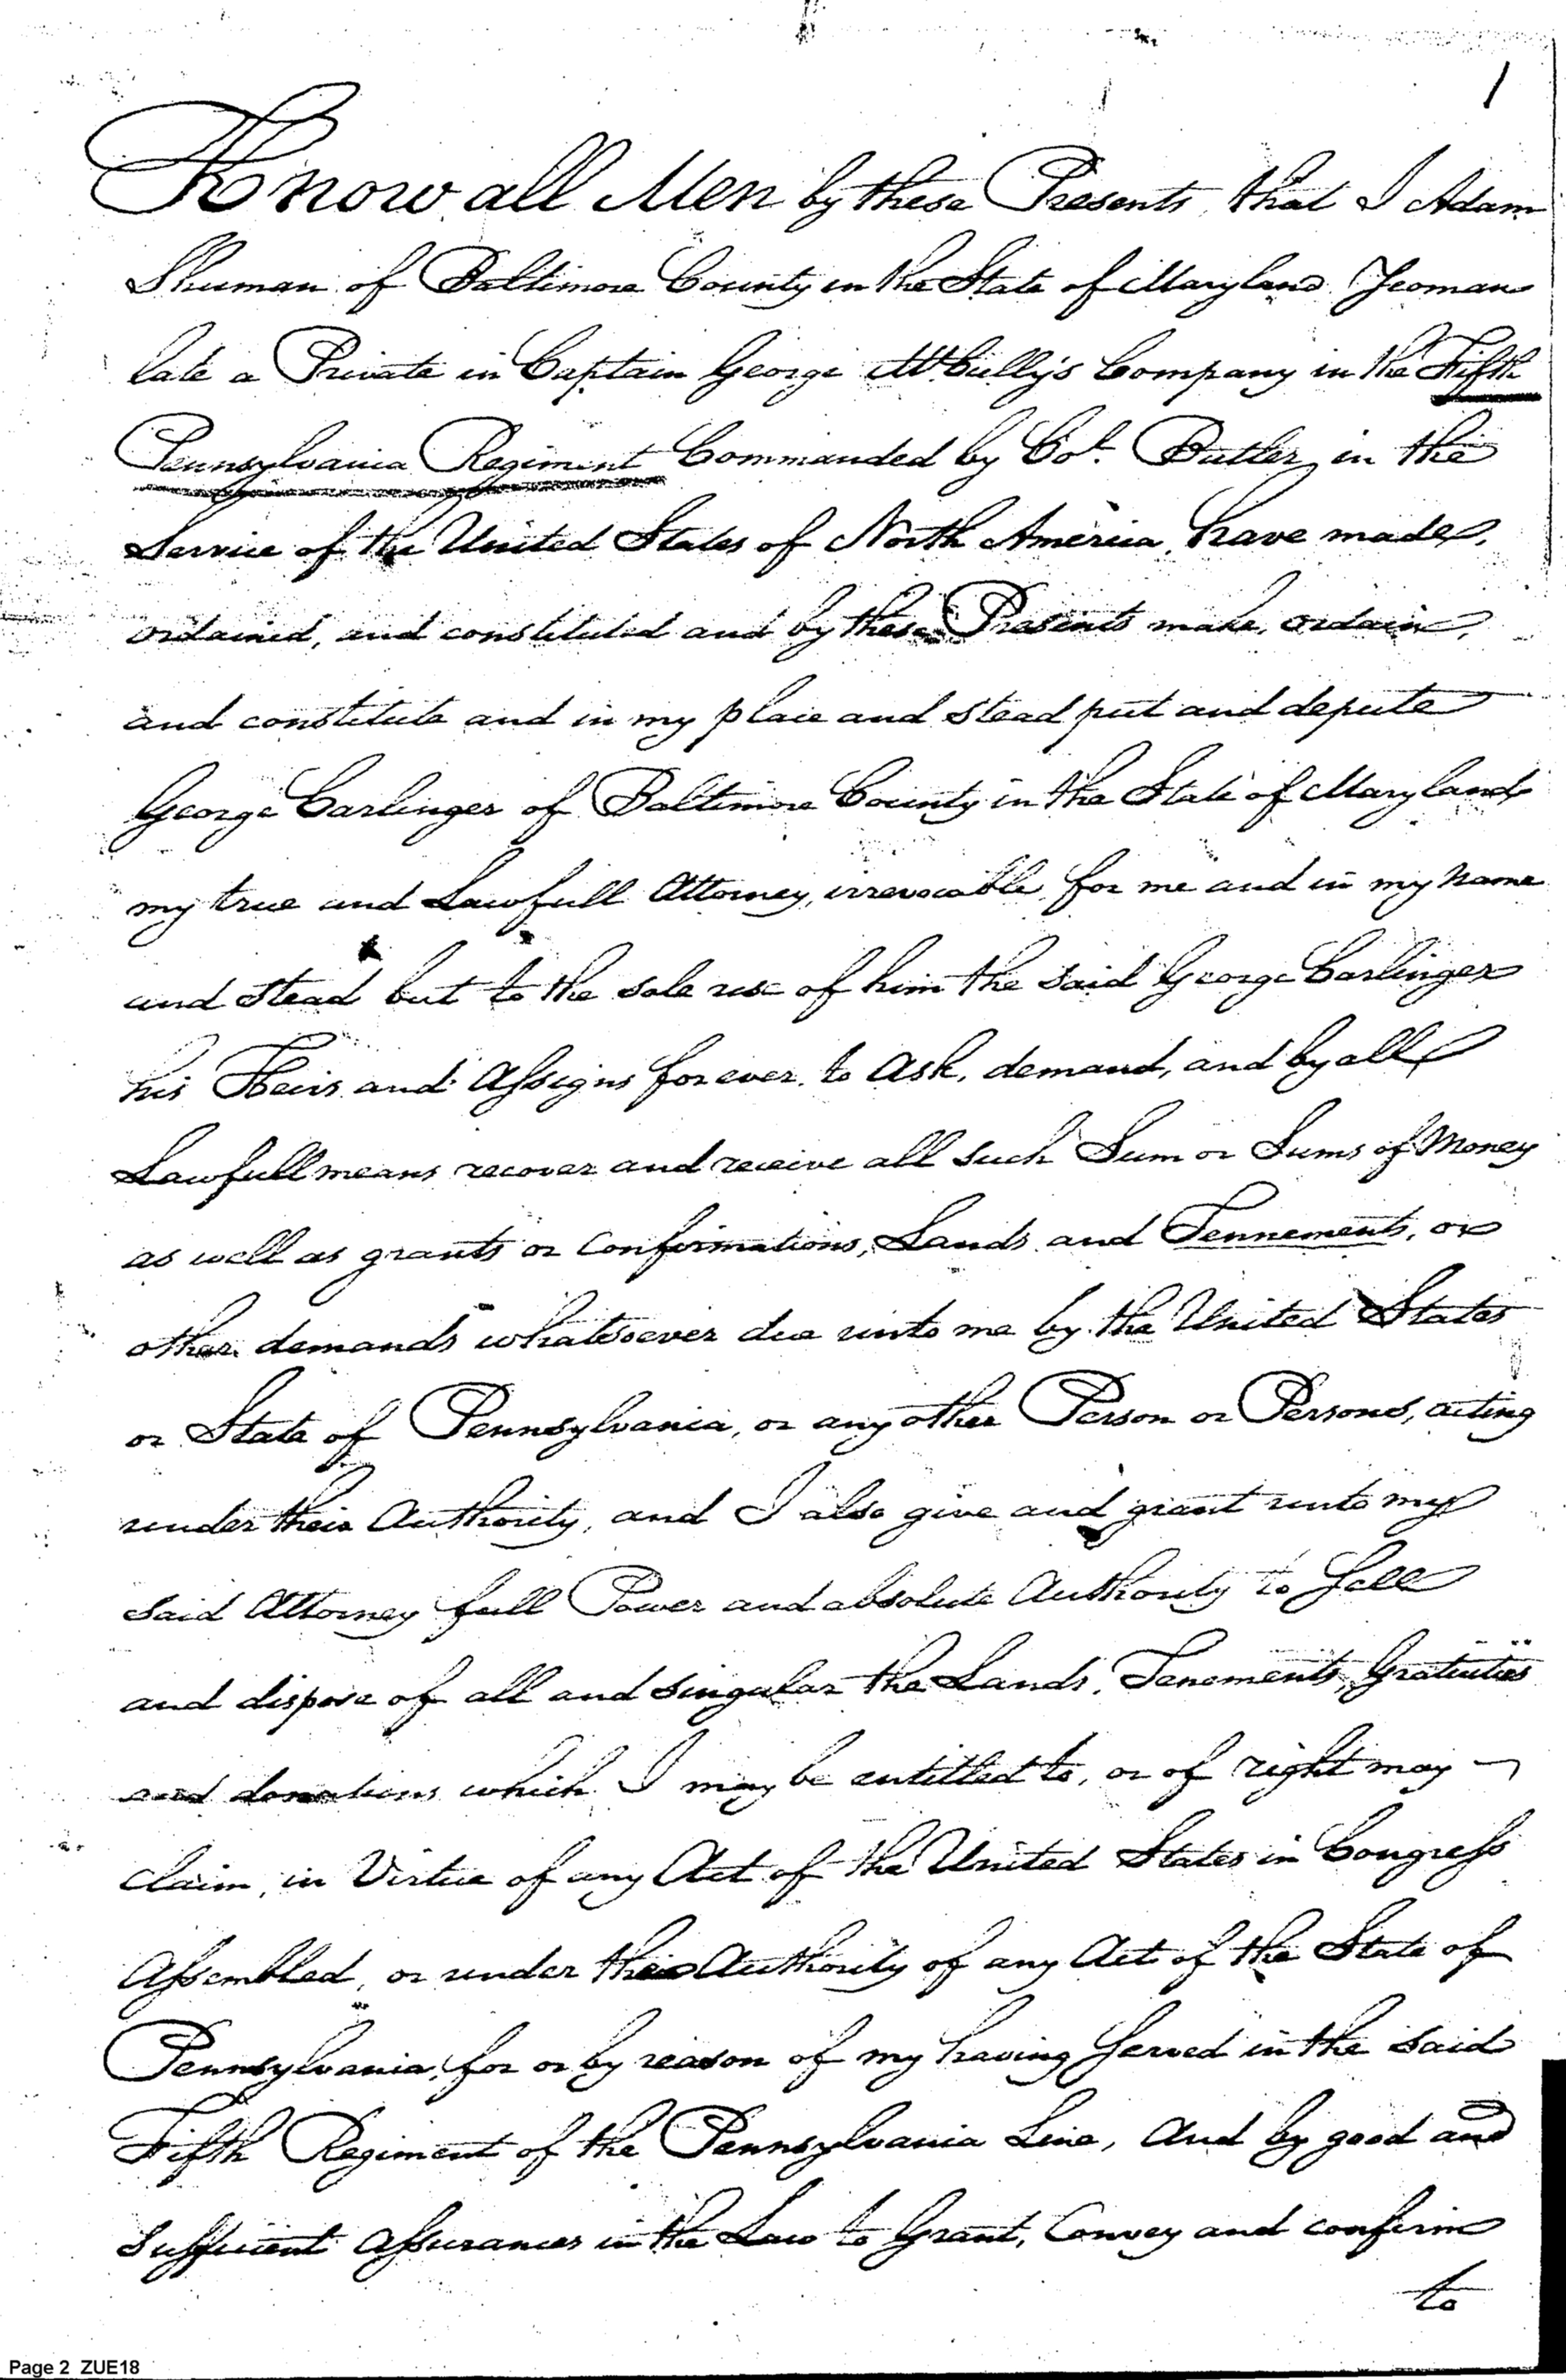 1
Know all Men by these Presents, that I Adam
Shuman of Baltimore County in the State of Maryland Yeoman
late a Private in Captain George McCully's Company in the Fifth
Pennsylvania Regiment Commanded by Col. Butler, in the
Service of the United States of North America, have made,
ordained, and constituted and by these Presents make, ordain,
and constitute and in my place and stead put and depute
George Carlinger of Baltimore County in the State of Maryland
my true and Lawfull Attorney, irrevocable, for me and in my name
and stead but to the sole use of him the said George Carlinger
his Heirs and Assigns forever, to ask, demand, and by all
Lawfull means recover and receive all such Sum or Sums of Money
as well as grants or Confirmations, Lands and Tennements, or
other demands whatsoever due unto me by the United States
or State of Pennsylvania, or any other Person or Persons, acting
under their Authority, and I also give and grant unto my
said Attorney full Power and absolute Authority to Sell
and dispose of all and singular the Lands, Tenements, Gratuities
and donations which I may be entitled to, or of right may
Claim, in Virtue of any Act of the United States in Congress
Assembled, or under the Authority of any Act of the State of
Pennsylvania, for or by reason of my having Served in the said
Fifth Regiment of the Pennsylvania Line, And by good and
sufficient assurances in the Law to Grant, Convey and confirm
to
Page 2 ZUE18